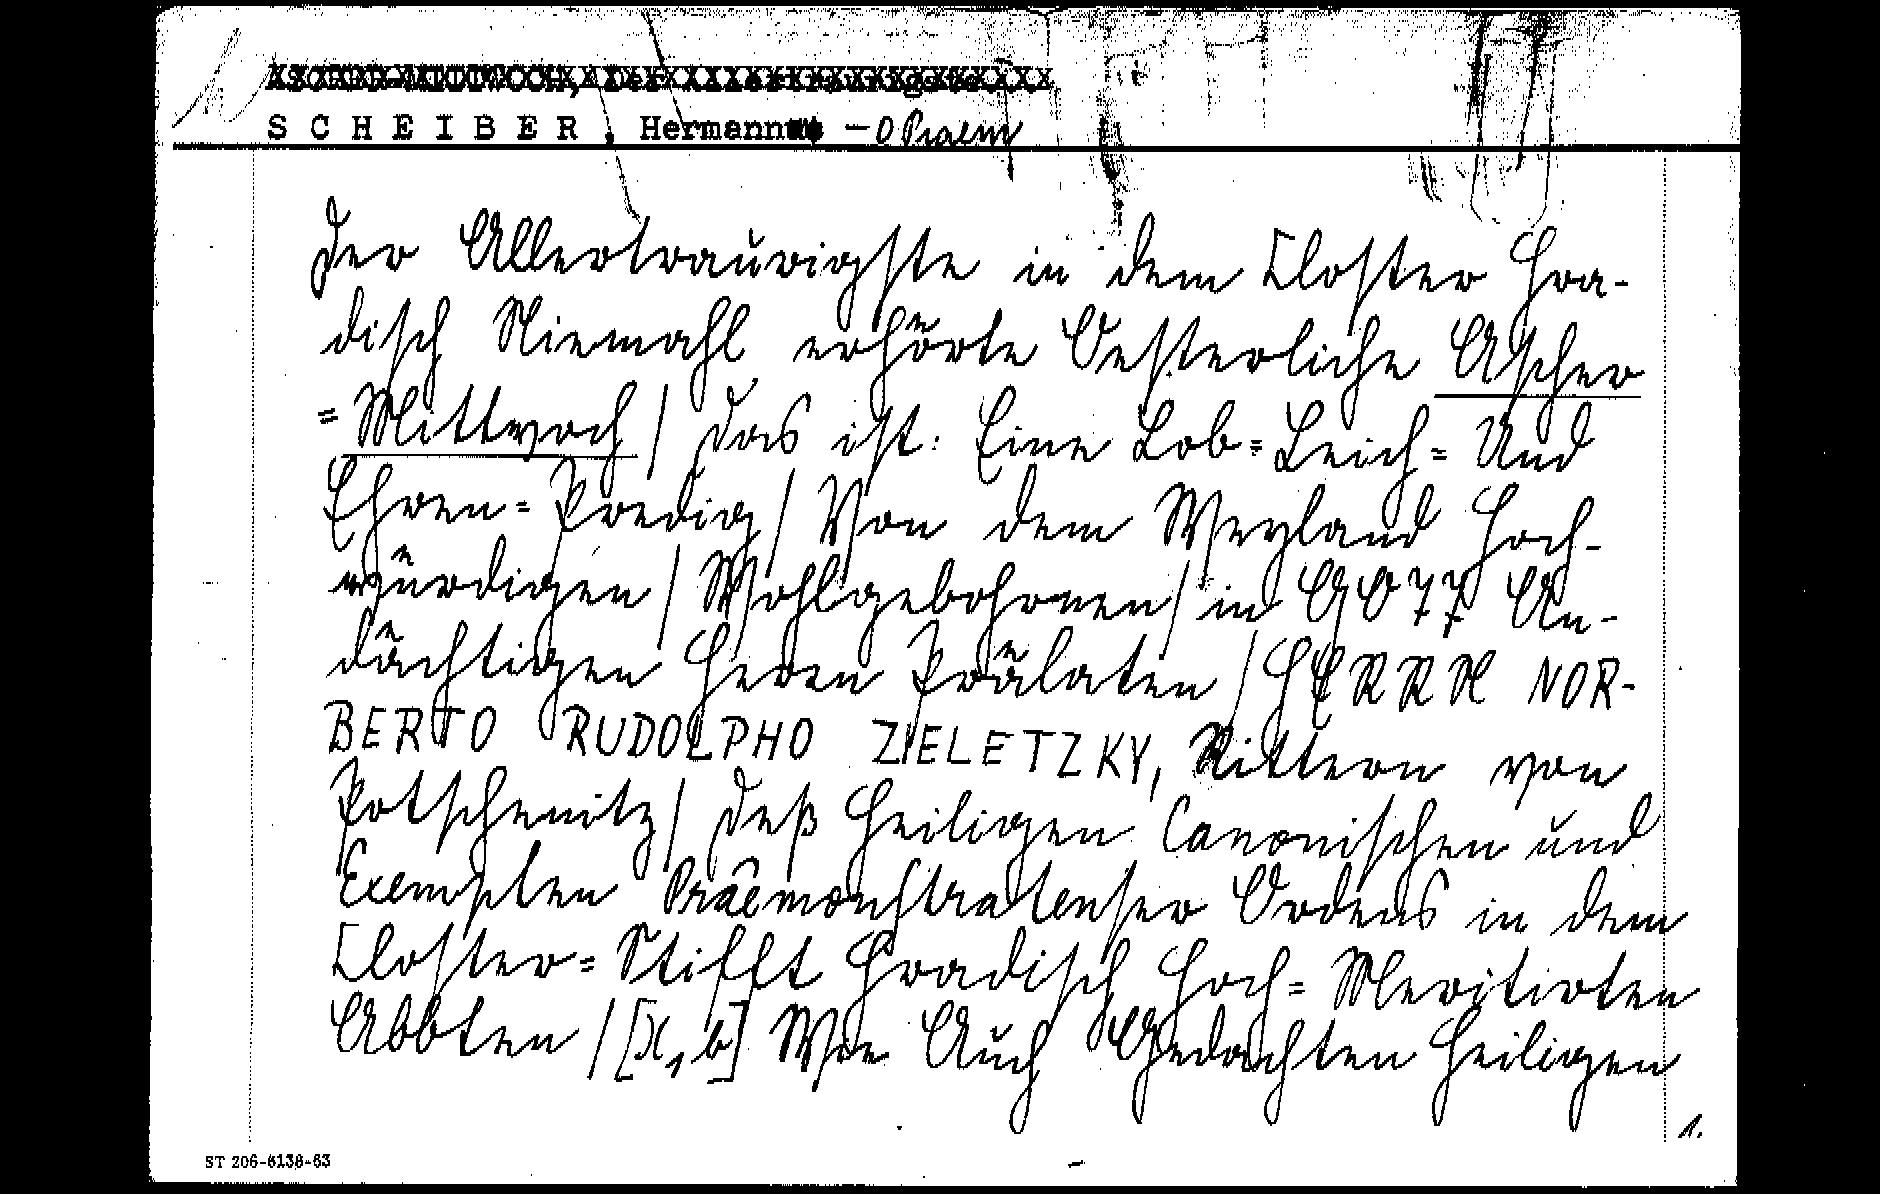 SCHEIBER, Hermann – O Praem
Der Allertraurigste in dem Closter Hra-
disch Niemahl erhörte Oesterliche Ascher
=Mittwoch / das ist: Eine Lob=Leich= Und
Ehren=Predig / Von dem Weyland Hoch-
würdigen / Wohlgebohrnen / in GOTT An-
dächtigen Herrn Prälaten / HERRN NOR-
BERTO RUDOLPHO ZIELETZKY, Rittern von
Potschenitz / deß Heiligen Canonischen und
Exempten Praemonstratenser Ordens in dem
Closter=Stifft Hradisch Hoch=Meritirten
Abbten / [X, b] Wie Auch Gedachten Heiligen
1.
ST 206-6138-63